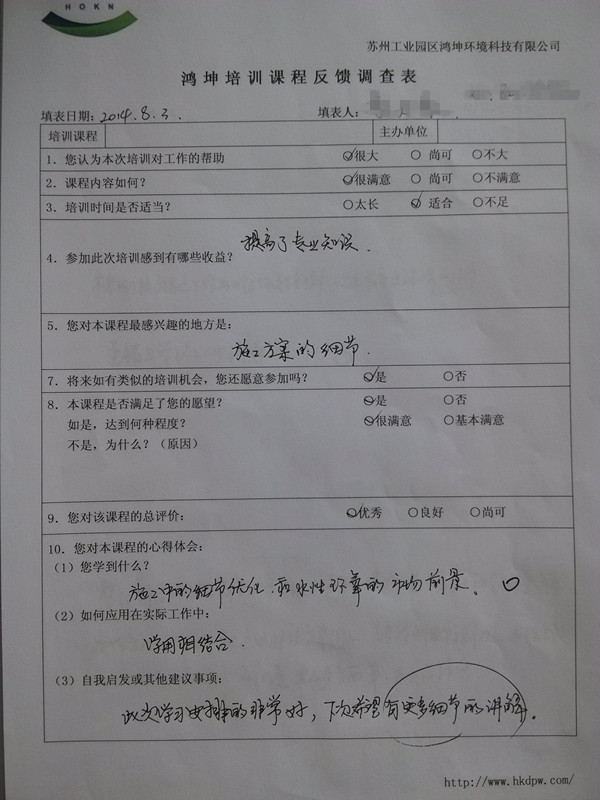 HOKN
苏州工业园区鸿坤环境科技有限公司
鸿坤培训课程反馈调查表
填表日期：2014.8.3. 填表人：
培训课程 主办单位
1. 您认为本次培训对工作的帮助 ○很大 ○ 尚可 ○不大
2. 课程内容如何？ ○很满意 ○ 尚可 ○不满意
3. 培训时间是否适当？ ○太长 ○ 适合 ○不足
提高了专业知识.
4. 参加此次培训感到有哪些收益？
5. 您对本课程最感兴趣的地方是：
施工方案的细节.
7. 将来如有类似的培训机会，您还愿意参加吗？ ○是 ○否
8. 本课程是否满足了您的愿望？ ○是 ○否
如是，达到何种程度？ ○很满意 ○基本满意
不是，为什么？（原因）
9. 您对该课程的总评价： ○优秀 ○良好 ○尚可
10. 您对本课程的心得体会：
(1) 您学到什么？
施工中的细节优化.和水性环氧的市场前景。
(2) 如何应用在实际工作中：
学用相结合.
(3) 自我启发或其他建议事项：
此次学习安排的非常好，下次希望有更多细节的讲解。
http://www.hkdpw.com/